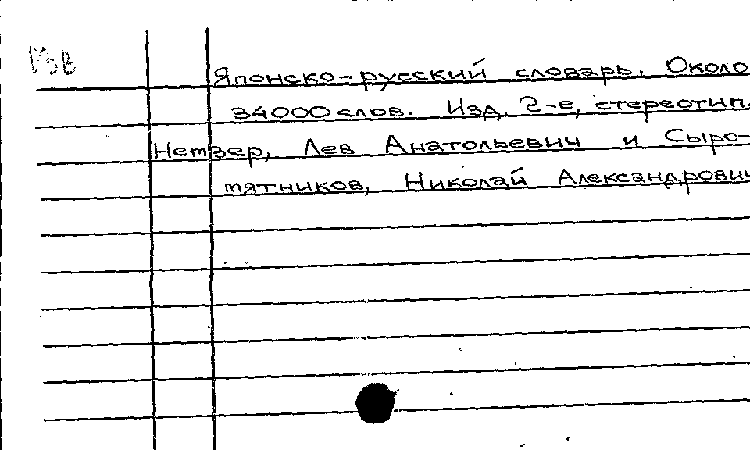 Японско-русский словарь. Около
34000 слов. Изд. 2-е, стереотип.
Немзер, Лев Анатольевич и Сыро-
мятников, Николай Александрович